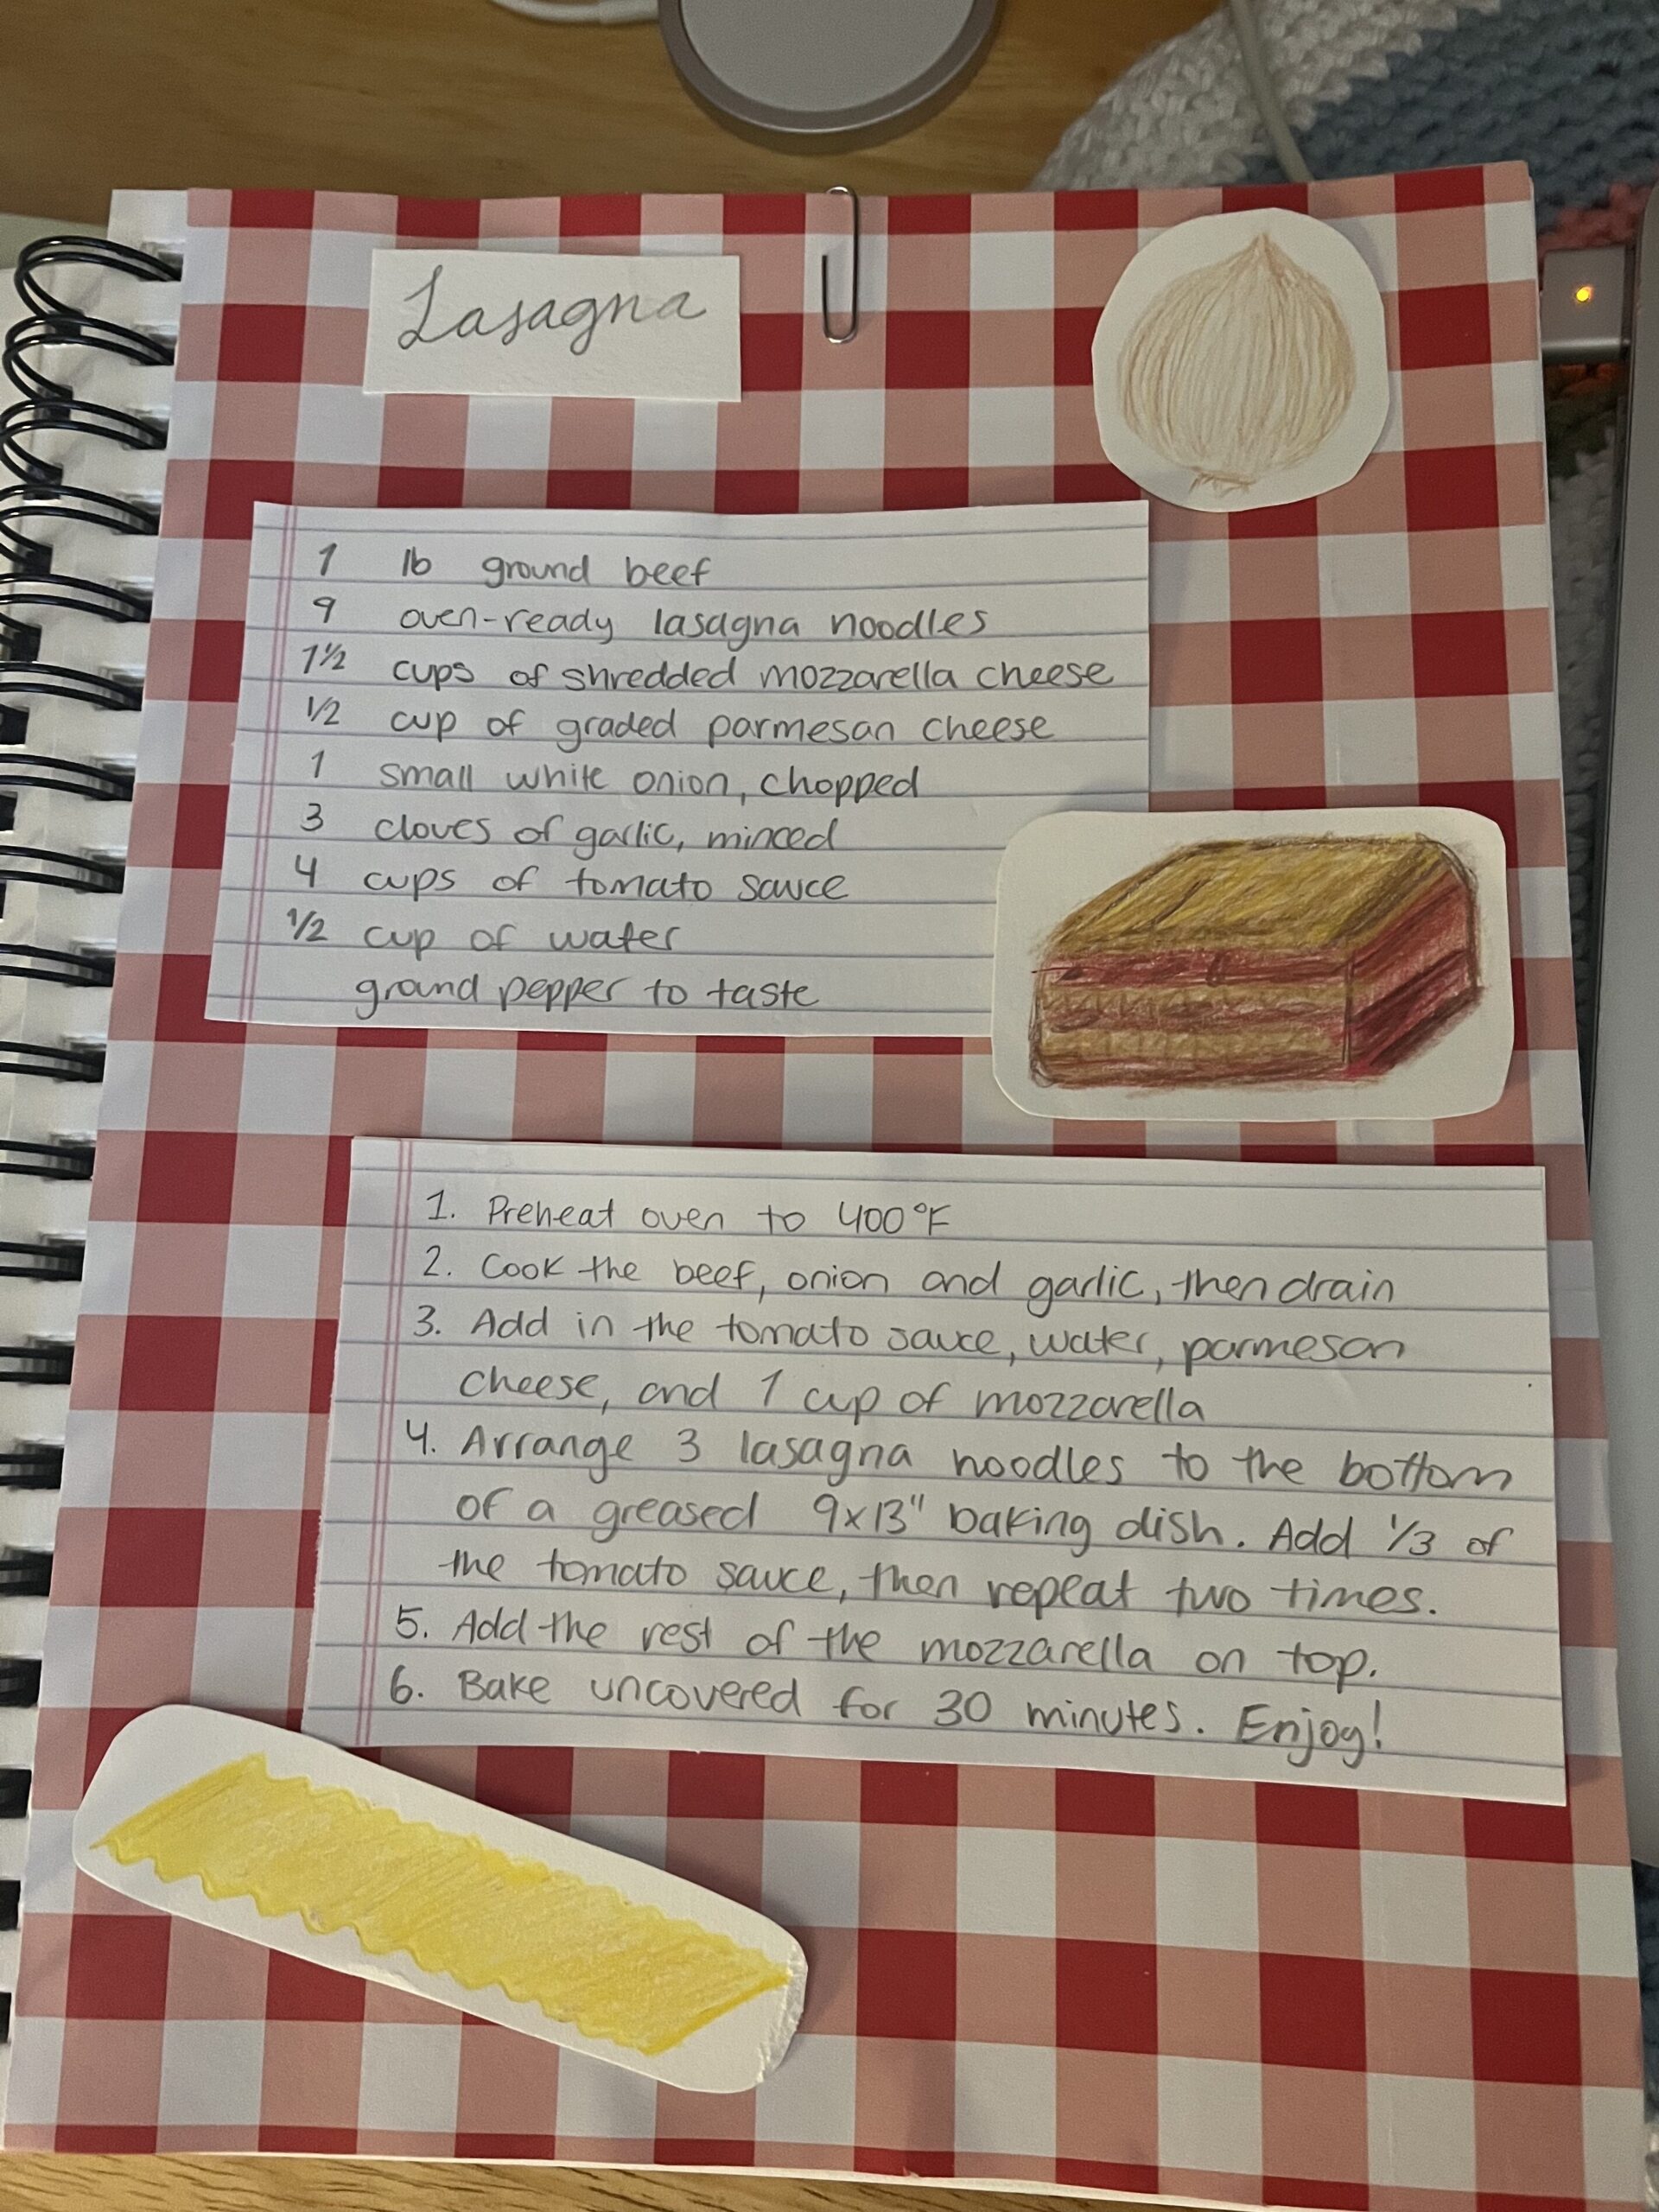 Lasagna
1 lb ground beef
9 oven-ready lasagna noodles
1½ cups of shredded mozzarella cheese
½ cup of graded parmesan cheese
1 small white onion, chopped
3 cloves of garlic, minced
4 cups of tomato sauce
½ cup of water
ground pepper to taste
1. Preheat oven to 400°F
2. Cook the beef, onion and garlic, then drain
3. Add in the tomato sauce, water, parmesan
cheese, and 1 cup of mozzarella
4. Arrange 3 lasagna noodles to the bottom
of a greased 9x13" baking dish. Add 1/3 of
the tomato sauce, then repeat two times.
5. Add the rest of the mozzarella on top.
6. Bake uncovered for 30 minutes. Enjoy!